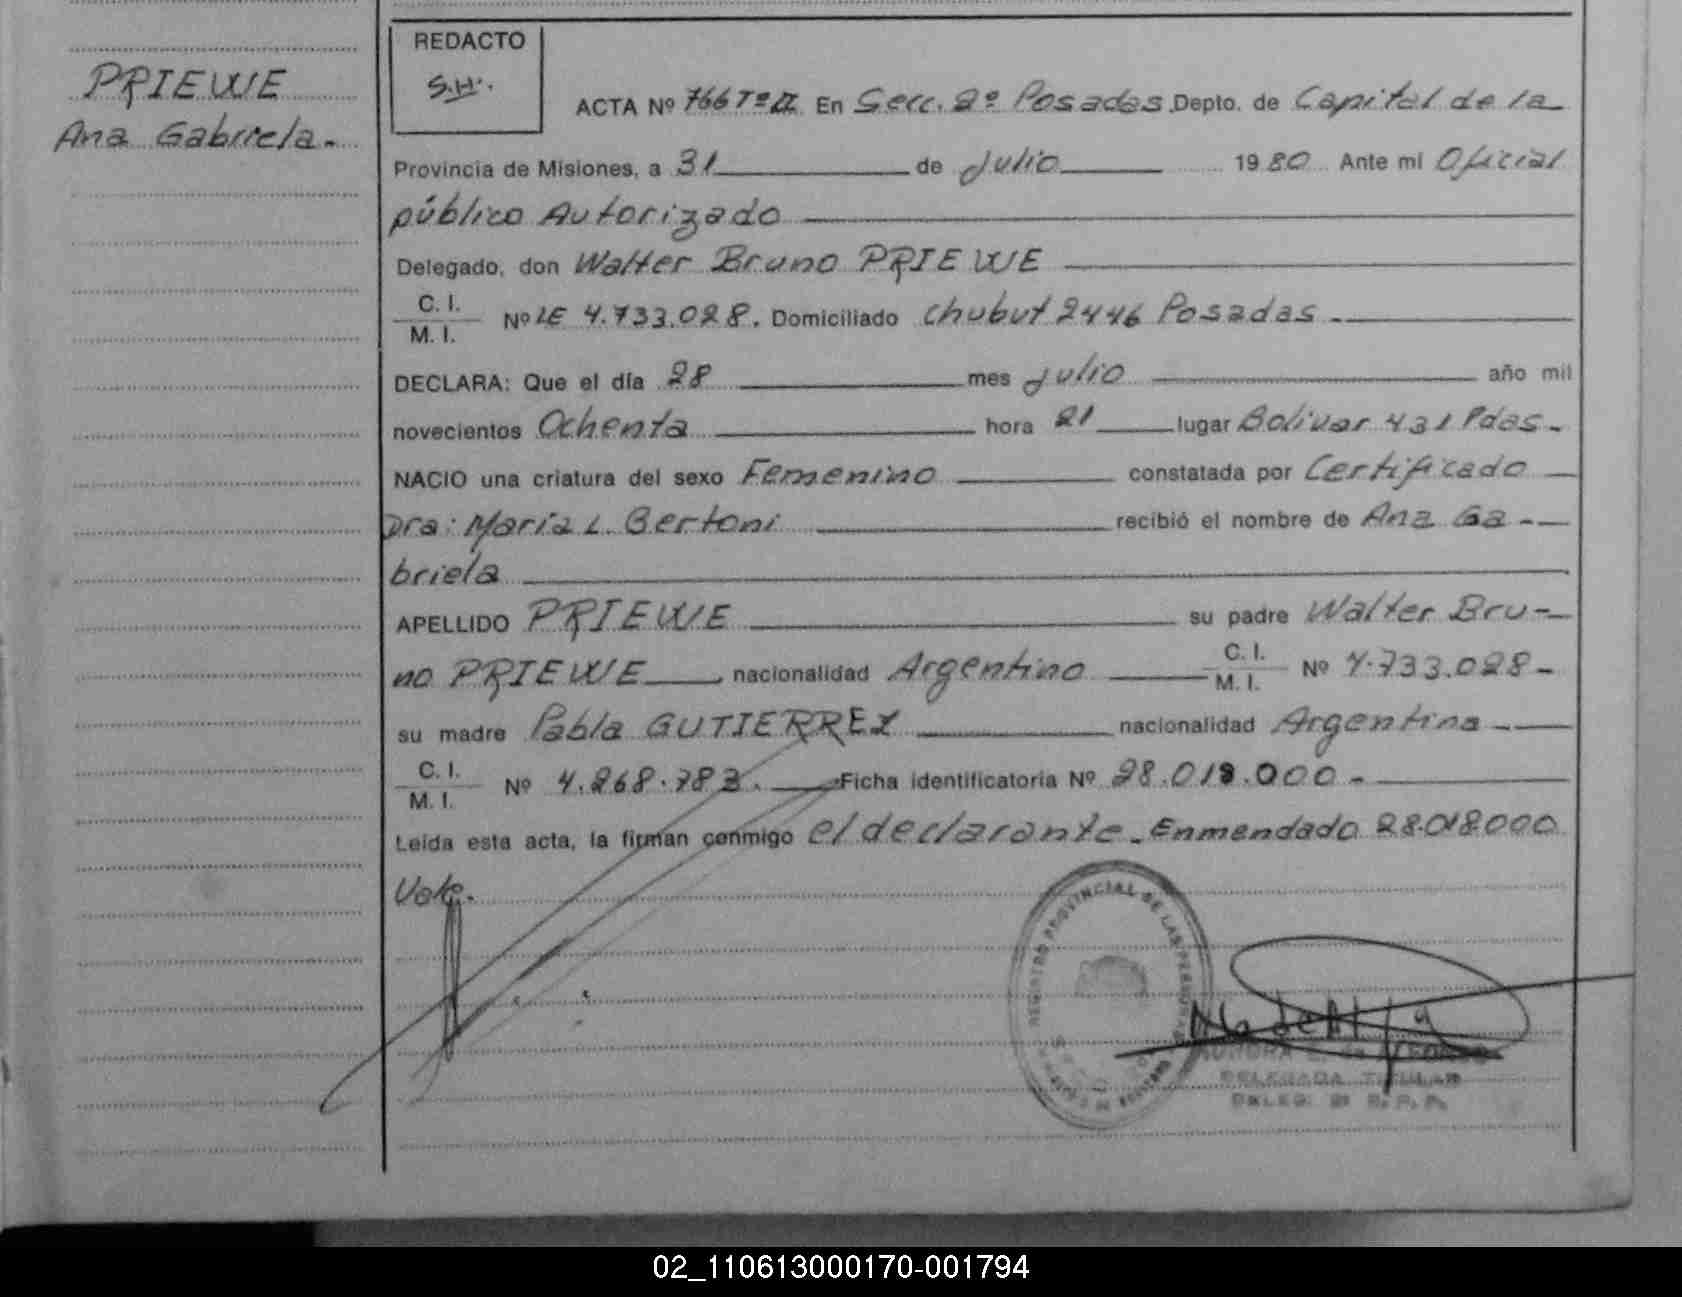 PRIEWE
Ana Gabriela.
REDACTO
S.H.
ACTA Nº 766 Tº II En Secc. 2º Posadas Depto. de Capital de la
Provincia de Misiones, a 31 de Julio 1980 Ante mi Oficial
público Autorizado
Delegado, don Walter Bruno PRIEWE
C. I.
M. I.
Nº LE 4.733.028. Domiciliado Chubut 2446 Posadas.
DECLARA: Que el día 28 mes Julio año mil
novecientos Ochenta hora 21 lugar Bolivar 431 Pdas.
NACIO una criatura del sexo Femenino constatada por Certificado
Dra: Maria L. Bertoni recibió el nombre de Ana Ga-
briela
APELLIDO PRIEWE su padre Walter Bru-
no PRIEWE nacionalidad Argentino C. I. M. I. Nº 4.733.028-
su madre Pabla GUTIERREZ nacionalidad Argentina-
C. I.
M. I.
Nº 4.268.783. Ficha identificatoria Nº 28.018.000.-
Leída esta acta, la firman conmigo el declarante. Enmendado 28.018000
Vale.
REGISTRO PROVINCIAL DE LAS PERSONAS
AURORA
DELEGADA TITULAR
DELEG. 2ª R.P.P.
02_110613000170-001794